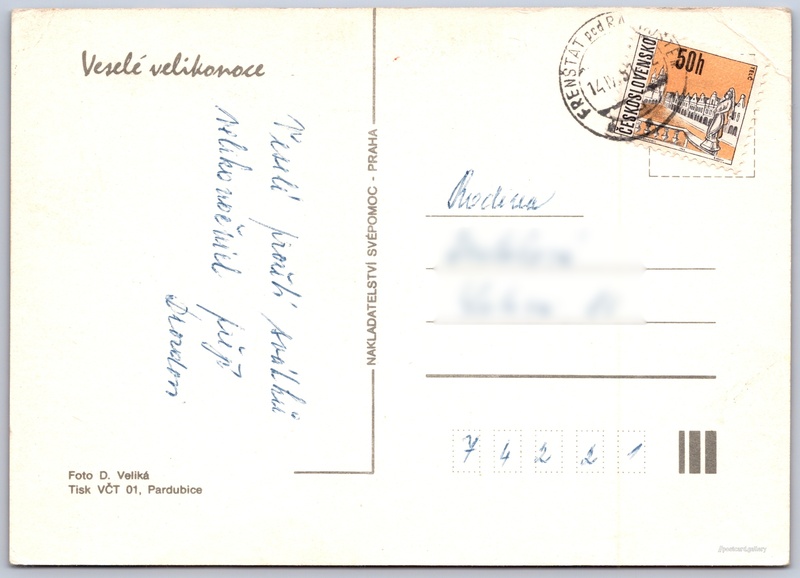 Veselé velikonoce
Veselé prožití svátků
velikonočních přejí
Drozdovi
Foto D. Veliká
Tisk VČT 01, Pardubice
NAKLADATELSTVÍ SVÉPOMOC - PRAHA
FRENŠTÁT pod RA
14.IV.
ČESKOSLOVENSKO
50h
TELČ
Rodina
74221
postcard.gallery